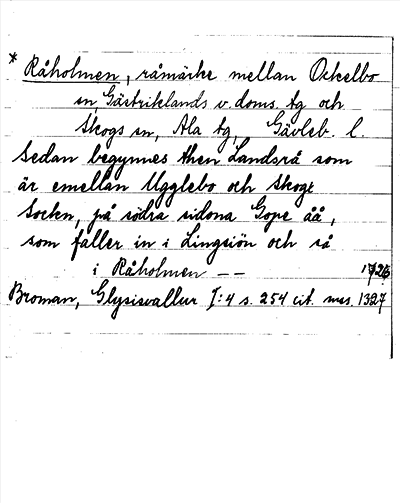 * Råholmen, råmärke mellan Ockelbo
sn, Gästriklands v. doms. tg och
Skogs sn, Ala tg, Gävleb. l.
Sedan begynnes then Landsrå som
är emellan Ugglebo och Skogs
Socken, på södra sidona Gope åå,
som faller in i Lingsiön och så
i Råholmen – – 1726
Broman, Glysisvallur I:4 s. 254 cit. mas. 1327